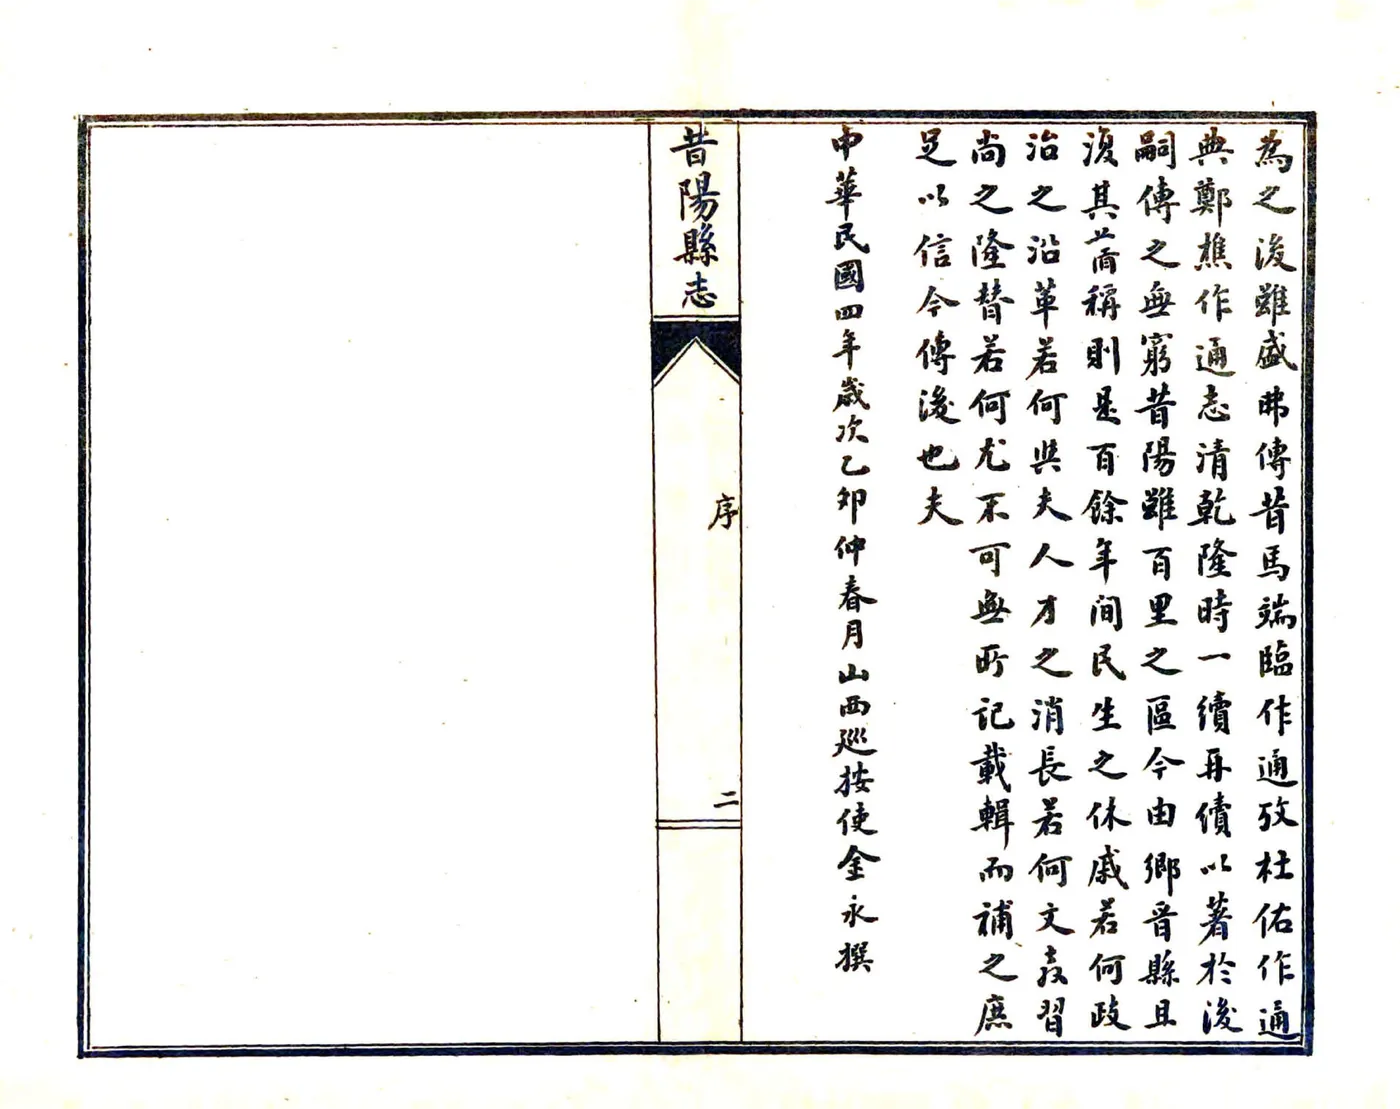 為之後雖盛弗傳昔馬端臨作通攷杜佑作通
典鄭樵作通志清乾隆時一續再續以著於後
嗣傳之無窮昔陽雖百里之區今由鄉晋縣且
復其舊稱則是百餘年間民生之休戚若何政
治之沿革若何與夫人才之消長若何文教習
尚之隆替若何尤不可無所記載輯而補之庶
足以信今傳後也夫
中華民國四年歲次乙卯仲春月山西巡按使金永撰
昔陽縣志
序
二